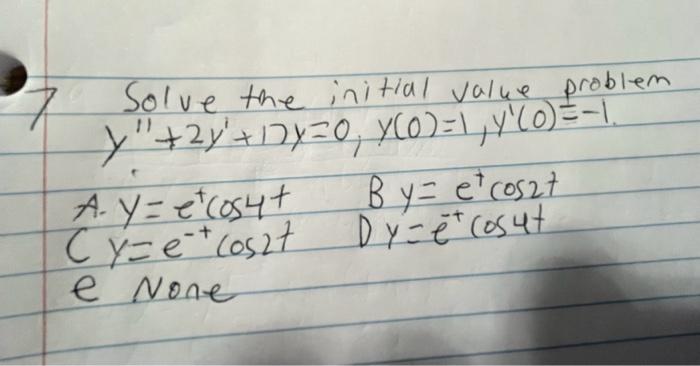 7 Solve the initial value problem
y"+2y'+17y=0, y(0)=1, y'(0)=-1.
A. y=e^t cos4t B y= e^t cos2t
C y=e^-t cos2t D y=e^-t cos4t
e None